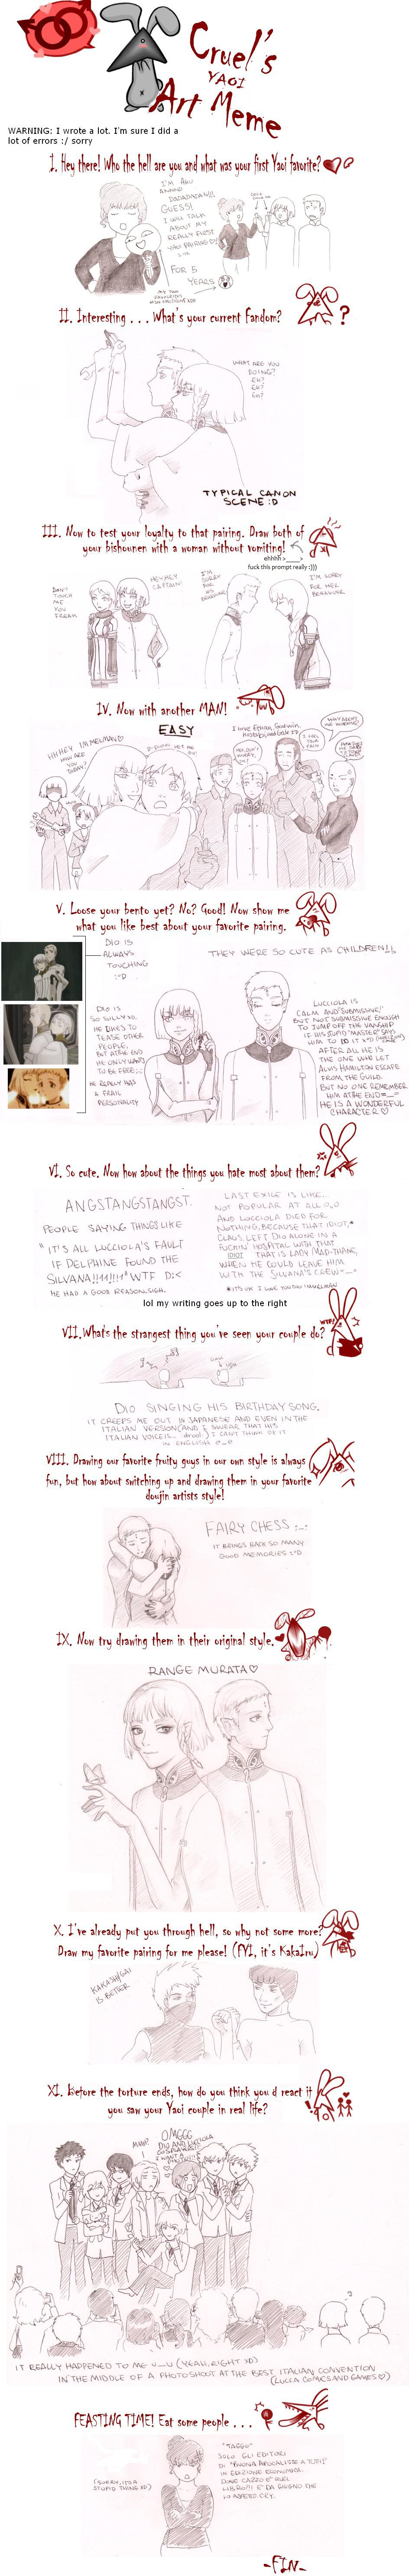 Cruel's
YAOI
Art Meme
WARNING: I wrote a lot. I'm sure I did a
lot of errors :/ sorry
I. Hey there! Who the hell are you and what was your first Yaoi favorite?
I'M AKU
GUESS!
I WILL TALK
ABOUT MY
REALLY FIRST
YAOI PAIRING
FOR 5
YEARS
II. Interesting . . . What's your current fandom?
?
WHAT ARE YOU
DOING?
EH?
EH?
EH?
TYPICAL CANON
SCENE :D
III. Now to test your loyalty to that pairing. Draw both of
your bishounen with a woman without vomiting!
ehhhh >____>
fuck this prompt really :)))
DON'T
TOUCH
ME
YOU
FREAK
HEY HEY
CAPTAIN!
I'M
SORRY
FOR HIS
BEHAVIOUR
I'M SORRY
FOR HER
BEHAVIOUR
IV. Now with another MAN!
EASY
HHHEY I'M MELMAN
HOW ARE
YOU
TODAY?
I FEEL
YOUR
PAIN
V. Loose your bento yet? No? Good! Now show me
what you like best about your favorite pairing.
DIO IS
ALWAYS
TOUCHING
:°D
THEY WERE SO CUTE AS CHILDREN!!
DIO IS
SO SILLY XD.
HE LIKES TO
TEASE OTHER
PEOPLE,
BUT AT THE END
HE ONLY WANTS
TO BE FREE ;_;
HE REALLY HAS
A FRAIL
PERSONALITY
LUCCIOLA IS
CALM AND "SUBMISSIVE"
BUT NOT SUBMISSIVE ENOUGH
TO JUMP OFF THE VANSHIP
IF HIS STUPID "MASTER" SAYS
HIM TO DO IT XD
AFTER ALL HE IS
THE ONE WHO LET
ALVIS HAMILTON ESCAPE
FROM THE GUILD.
BUT NO ONE REMEMBER
HIM AT THE END =_="
HE IS A WONDERFUL
CHARACTER ♡
VI. So cute. Now how about the things you hate most about them?
ANGSTANGSTANGST.
PEOPLE SAYING THINGS LIKE
"IT'S ALL LUCCIOLA'S FAULT
IF DELPHINE FOUND THE
SILVANA!!11!!!1" WTF D:<
HE HAD A GOOD REASON, SIGH.
LAST EXILE IS LIKE...
NOT POPULAR AT ALL O_O
AND LUCCIOLA DIED FOR
NOTHING, BECAUSE THAT IDIOT,*
CLAUS, LEFT DIO ALONE IN A
FUCKIN' HOSPITAL WITH THAT
IDIOT THAT IS LADY MAD-THANE,
WHEN HE COULD LEAVE HIM
WITH THE SILVANA'S CREW =_="
lol my writing goes up to the right
VII.What's the strangest thing you've seen your couple do?
WTF?!
DIO SINGING HIS BIRTHDAY SONG.
IT CREEPS ME OUT IN JAPANESE AND EVEN IN THE
ITALIAN VERSION (AND I SWEAR THAT HIS
ITALIAN VOICE IS... drool) I CAN'T THINK OF IT
IN ENGLISH @_@
VIII. Drawing our favorite fruity guys in our own style is always
fun, but how about switching up and drawing them in your favorite
doujin artists style!
FAIRY CHESS ;_;
IT BRINGS BACK SO MANY
GOOD MEMORIES :°D
IX. Now try drawing them in their original style.
RANGE MURATA♡
X. I've already put you through hell, so why not some more?
Draw my favorite pairing for me please! (FYI, it's KakaIru)
KAKASHI/GAI
IS BETTER
XI. Before the torture ends, how do you think you d react it
you saw your Yaoi couple in real life?
OMGGG
DIO AND LUCCIOLA
IT REALLY HAPPENED TO ME U_U (YEAH, RIGHT XD)
IN THE MIDDLE OF A PHOTOSHOOT AT THE BEST ITALIAN CONVENTION
(LUCCA COMICS AND GAMES ♡)
FEASTING TIME! Eat some people . . .
(SORRY, IT'S A
STUPID THING XD)
"TAGGO"
SOLO GLI EDITORI
DI "BUONA APOCALISSE A TUTTI!"
IN EDIZIONE ECONOMICA.
DOVE CAZZO E' QUEL
LIBRO!!! E' DA GIUGNO CHE
LO ASPETTO. CRY.
-FIN-